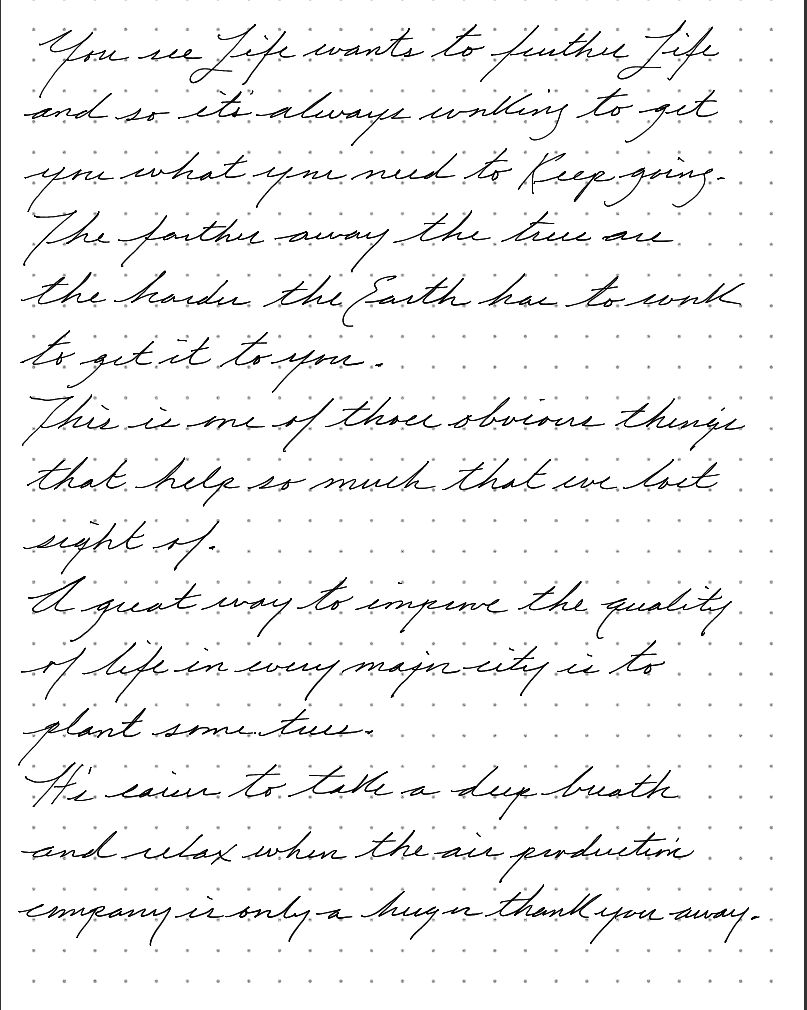 You see Life wants to further Life
and so it's always working to get
you what you need to Keep going.
The farther away the trees are
the harder the Earth has to work
to get it to you.
This is one of those obvious things
that help so much that we lost
sight of.
A great way to improve the quality
of life in every major city is to
plant some trees.
It's easier to take a deep breath
and relax when the air production
company is only a hug or thank you away.